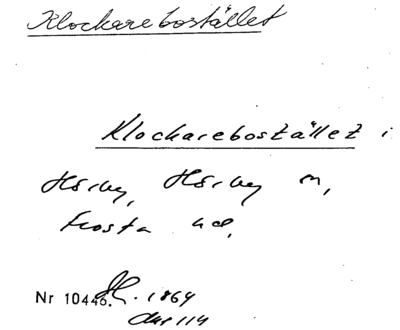 Klockarebostället
Klockarebostället i
Hörby, Hörby sn,
Frosta hd,
Nr 10446. 1864
Akt 114